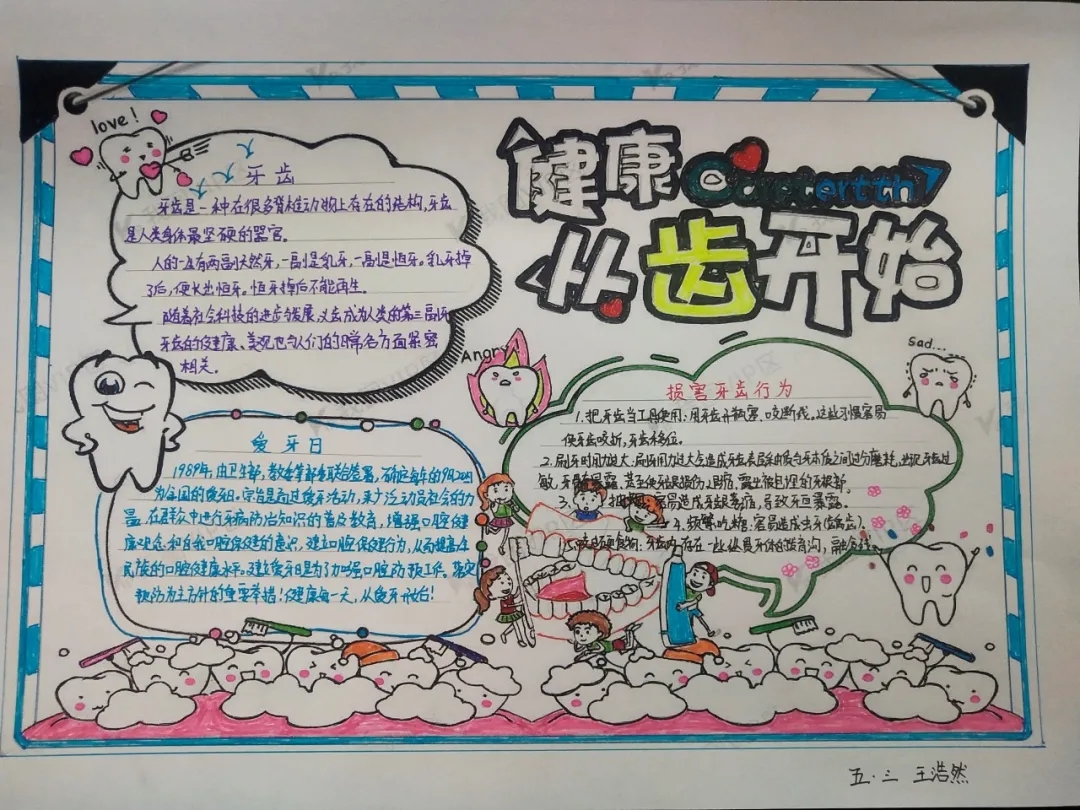 love！
牙齿
牙齿是一种在很多脊椎动物上存在的结构，牙齿
是人类身体最坚硬的器官。
人的一生有两副天然牙，一副是乳牙，一副是恒牙。乳牙掉
了后，便长出恒牙。恒牙掉后不能再生。
随着社会科技的进步发展，又会成为人类的第三副牙
牙齿的健康、美观也与人们的日常各方面紧密
相关。
健康
从齿开始
Angry
Sad...
爱牙日
1989年，由卫生部，教委等部委联合签署，确定每年的9月20日
为全国的爱牙日。宗旨是通过爱牙活动，广泛动员社会的力
量，在群众中进行牙病防治知识的普及教育，增强口腔健
康观念和自我口腔保健的意识，建立口腔保健行为，从而提高全
民族的口腔健康水平。建立爱牙日是为了加强口腔预防工作，落实
预防为主方针的重要举措！健康每一天，从爱牙开始！
损害牙齿行为
1.把牙齿当工具使用：用牙齿开瓶盖、咬断线。这些习惯容易
使牙齿咬折，牙齿移位。
2.刷牙时用力过大：刷牙用力过大会造成牙齿表层釉质与牙本质之间过分磨耗，出现牙齿过
敏，牙髓暴露，甚至使牙龈损伤
3.
容易造成牙龈萎缩，导致牙
暴露。
4.频繁吃糖：容易造成虫牙(龋齿)。
五.三 王浩然